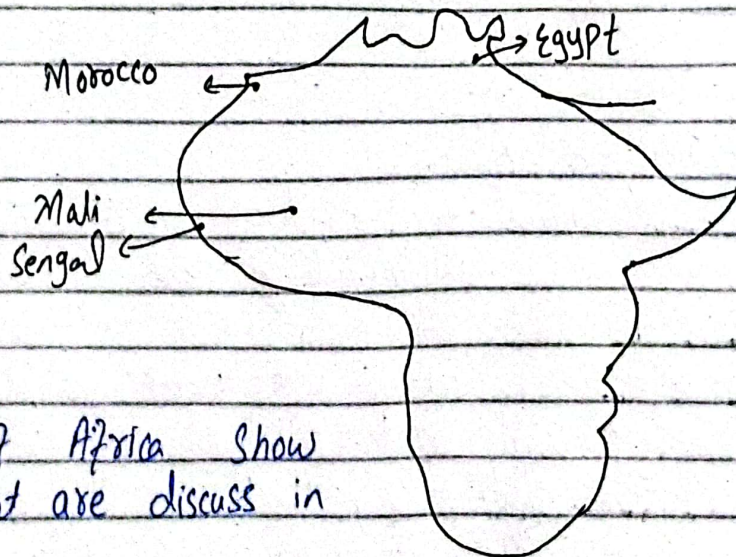 Egypt
Morocco
Mali
Sengal
Africa Show
are discuss in